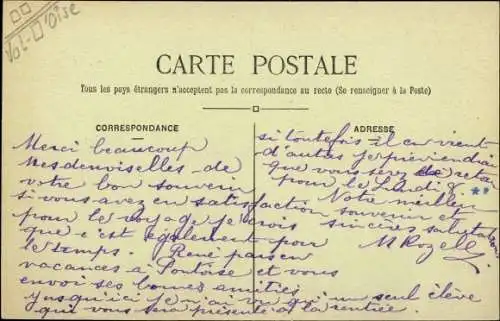 Val-D'Oise
CARTE POSTALE
Tous les pays étrangers n'acceptent pas la correspondance au recto (Se renseigner à la Poste)
CORRESPONDANCE
Merci beaucoup
Mesdemoiselles de
votre bon souvenir
si vous avez eu satisfaction
pour le voyage je crois
que c'est également pour
le temps. René passe en
vacances à Pontoise et vous
envoi ses bonnes amitiés
jusqu'ici je n'ai vu qu'un seul élève
qui vous sera présenté à la rentrée
ADRESSE
si toutefois il en vient
d'autres je préviendrai
que vous serez de retour
pour le Lundi 8.
Notre meilleur
souvenir et
sincères